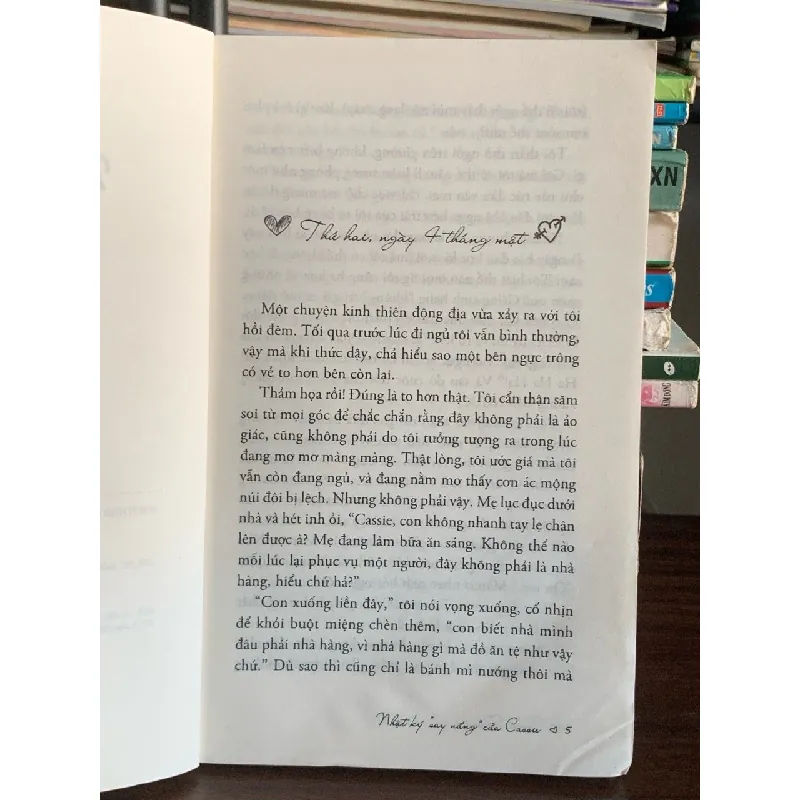 Thứ hai, ngày 4 tháng một
Một chuyện kinh thiên động địa vừa xảy ra với tôi
hồi đêm. Tối qua trước lúc đi ngủ tôi vẫn bình thường,
vậy mà khi thức dậy, chả hiểu sao một bên ngực trông
có vẻ to hơn bên còn lại.
Thảm họa rồi! Đúng là to hơn thật. Tôi cẩn thận săm
soi từ mọi góc để chắc chắn rằng đây không phải là ảo
giác, cũng không phải do tôi tưởng tượng ra trong lúc
đang mơ mơ màng màng. Thật lòng, tôi ước giá mà tôi
vẫn còn đang ngủ, và đang nằm mơ thấy cơn ác mộng
núi đôi bị lệch. Nhưng không phải vậy. Mẹ lục đục dưới
nhà và hét inh ỏi, “Cassie, con không nhanh tay lẹ chân
lên được à? Mẹ đang làm bữa ăn sáng. Không thể nào
mỗi lúc lại phục vụ một người, đây không phải là nhà
hàng, hiểu chứ hả?”
“Con xuống liền đây,” tôi nói vọng xuống, cố nhịn
để khỏi buột miệng chèn thêm, “con biết nhà mình
đâu phải nhà hàng, vì nhà hàng gì mà đồ ăn tệ như vậy
chứ.” Dù sao thì cũng chỉ là bánh mì nướng thôi mà
Nhật ký "say nắng" của Cassie 5
XN